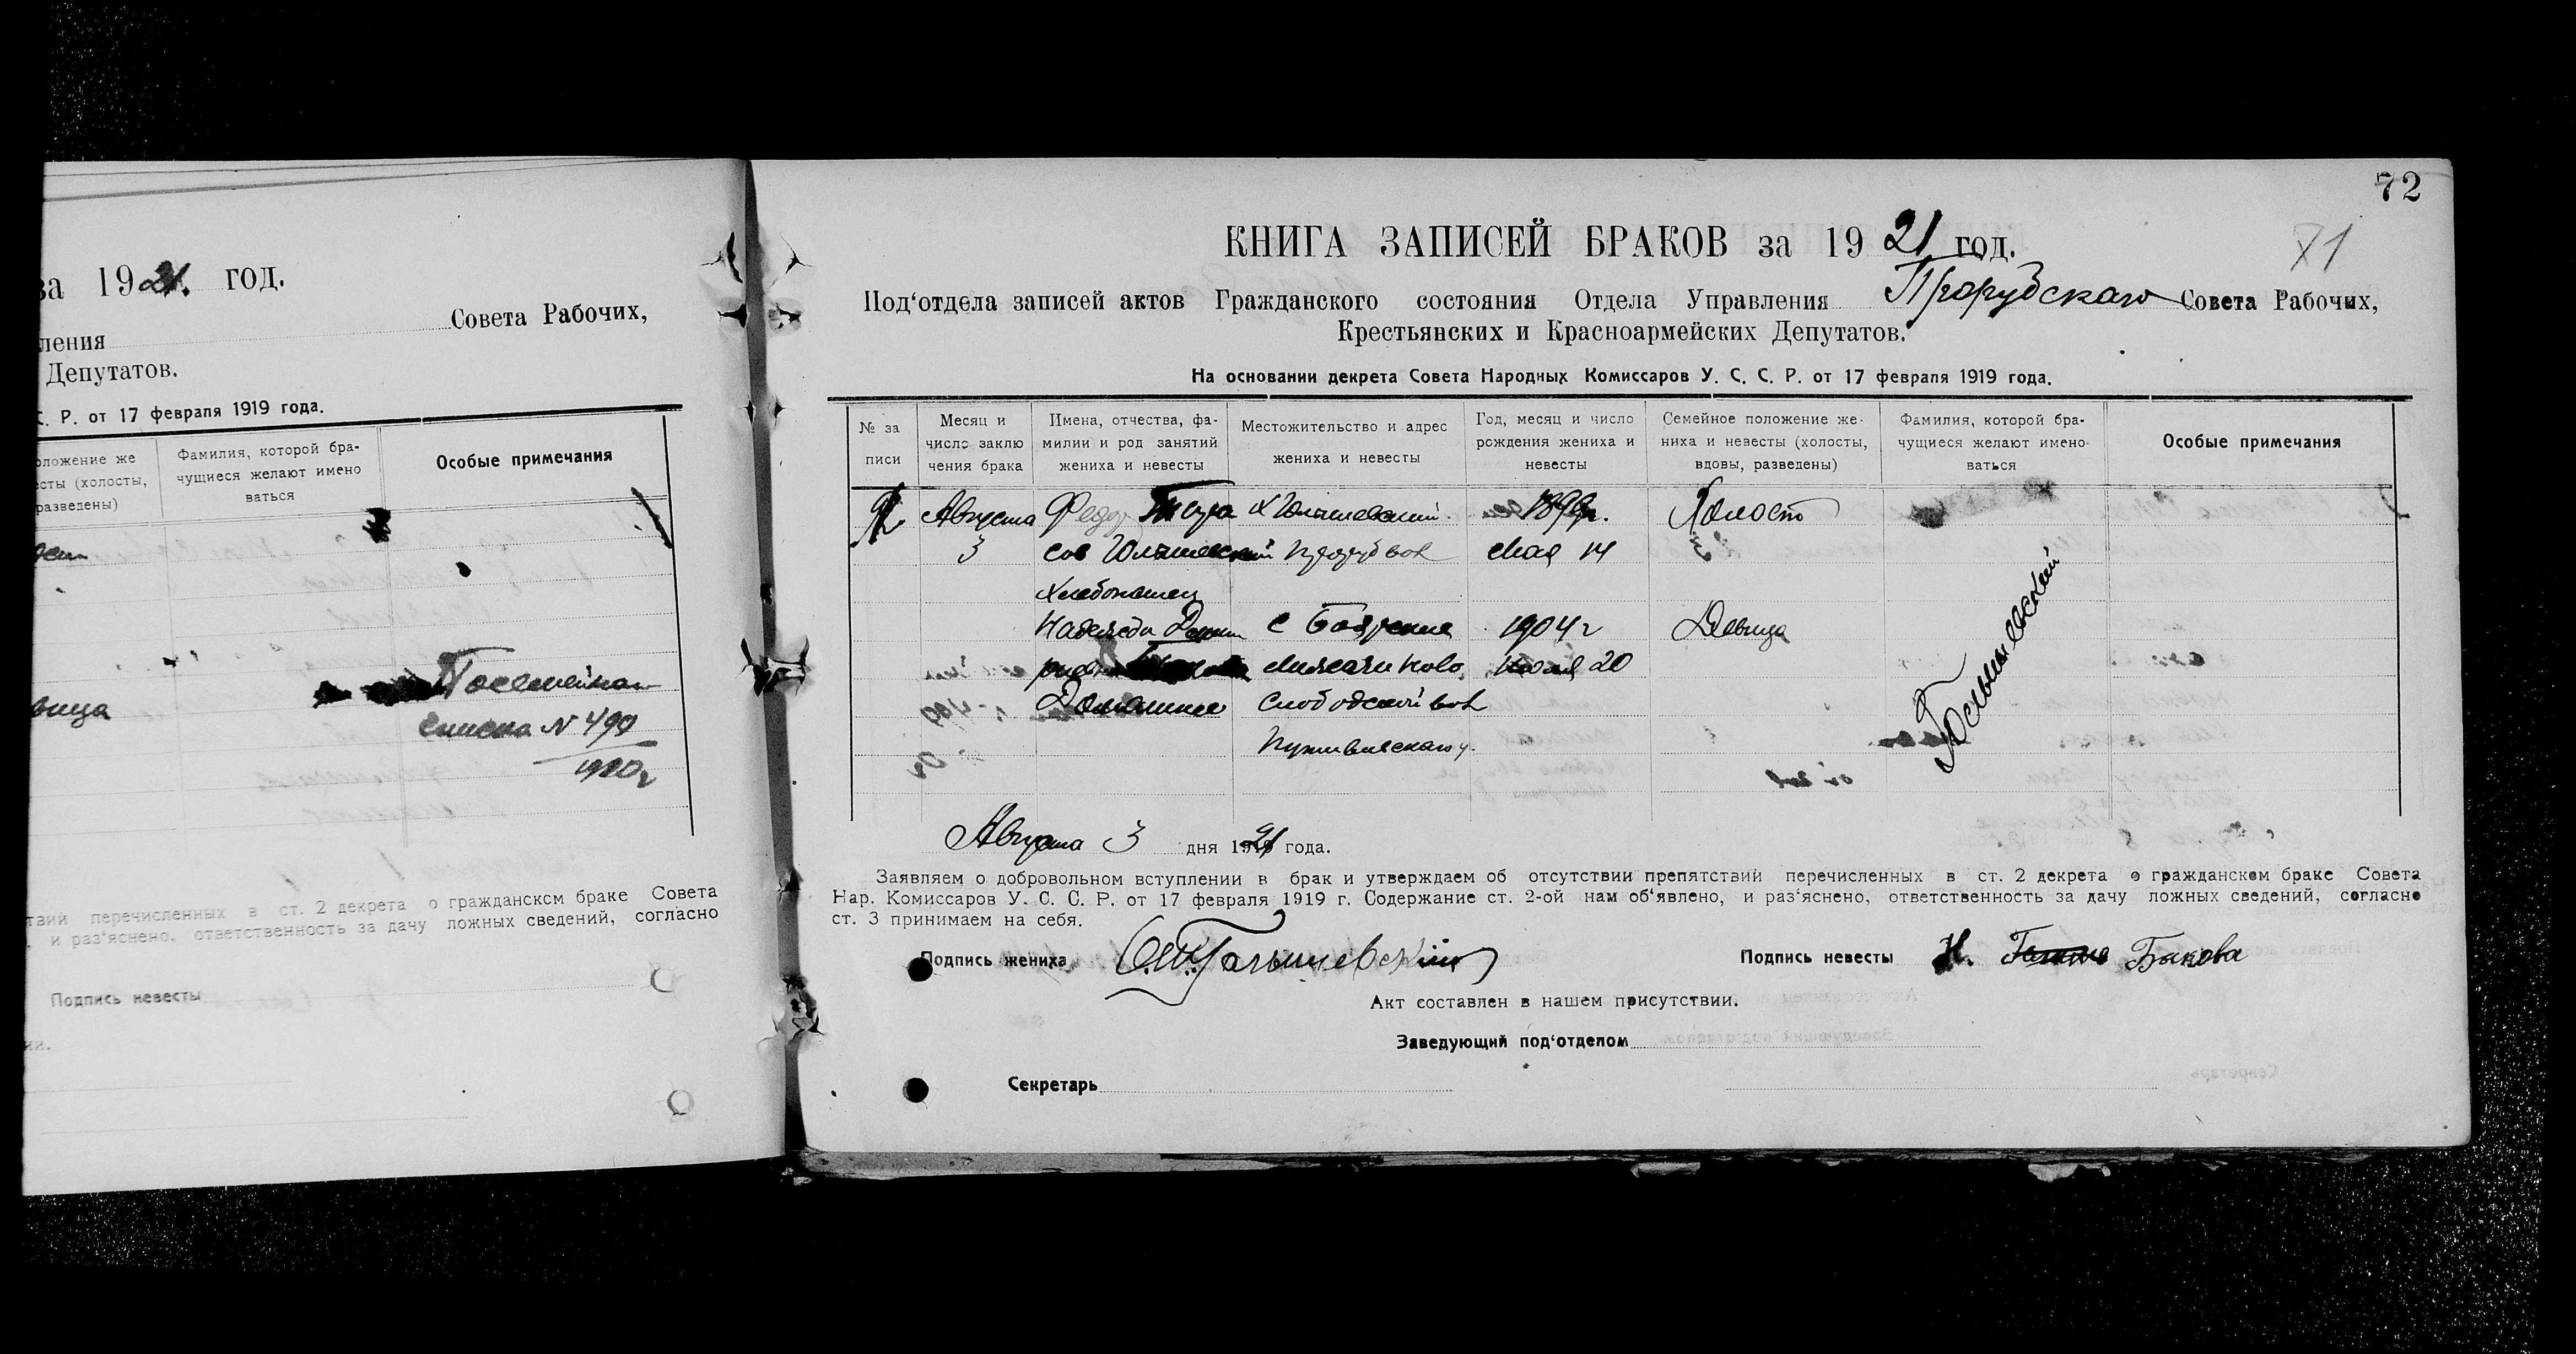 за 1921. год.
ления Совета Рабочих,
Депутатов.
С. Р. от 17 февраля 1919 года.
оложение же
есты (холосты,
разведены)
Фамилия, которой бра-
чущиеся желают имено
ваться
Особые примечания
вица
Посемейном
списка N 490
1920г
твий перечисленных в ст. 2 декрета о гражданском браке Совета
и раз‘яснено, ответственность за дачу ложных сведений, согласно
Подпись невесты
ии.
72
71
КНИГА ЗАПИСЕЙ БРАКОВ за 1921 год.
Под‘отдела записей актов Гражданского состояния Отдела Управления Прорубскаго Совета Рабочих,
Крестьянских и Красноармейских Депутатов.
На основании декрета Совета Народных Комиссаров У. С. С. Р. от 17 февраля 1919 года.
№ за
писи
Месяц и
число заклю
чения брака
Имена, отчества, фа-
милии и род занятий
жениха и невесты
Местожительство и адрес
жениха и невесты
Год, месяц и число
рождения жениха и
невесты
Семейное положение же-
ниха и невесты (холосты,
вдовы, разведены)
Фамилия, которой бра-
чущиеся желают имено-
ваться
Особые примечания
Августа Федор х Голышевский 1899г. Холост
3 сов Голышевский Прорубвол Мая 14
хлебопашец
Надежда 1904г Девица
Июля 20
Слободской вол
Путивлскаго у.
Голышевский
Августа 3 дня 1921 года.
Заявляем о добровольном вступлении в брак и утверждаем об отсутствии препятствий перечисленных в ст. 2 декрета о гражданском браке Совета
Нар. Комиссаров У. С. С. Р. от 17 февраля 1919 г. Содержание ст. 2-ой нам об‘явлено, и раз‘яснено, ответственность за дачу ложных сведений, согласно
ст. 3 принимаем на себя.
Подпись жениха Голышевский Подпись невесты Н. Быкова
Акт составлен в нашем присутствии.
Заведующий под‘отделом
Секретарь